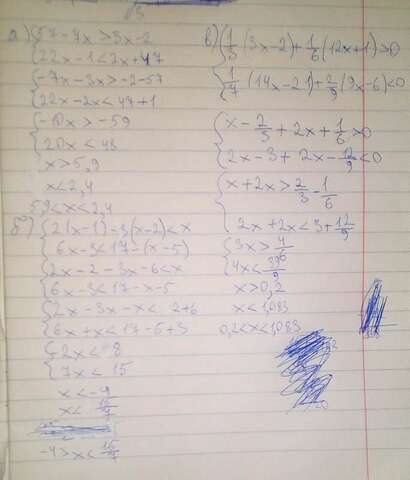 √3
а) {57-7x>3x-2
{22x-1<2x+47
{-7x-3x>-2-57
{22x-2x<47+1
{-10x>-59
{20x<48
x>5,9
x<2,4
5,9<x<2,4
б) {2(x-1)-3(x-2)<x
{6x-3<17-(x-5)
{2x-2-3x-6<x
{6x-3<17-x-5
{2x-3x-x<2+6
{6x+x<17-5+3
{-2x<-8
{7x<15
x<-4
x<15/7
-4>x<15/7
в) {1/3(3x-2)+1/6(12x+1)>0
{1/7(14x-21)+2/9(9x-6)<0
{x-2/3+2x+1/6>0
{2x-3+2x-12/9<0
{x+2x>2/3-1/6
{2x+2x<3+12/9
{3x>4/6
{4x<39/9
x>0,2
x<1,083
0,2<x<1,083